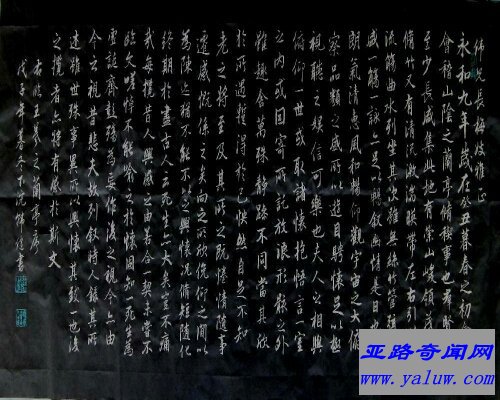 永和九年歲在癸丑暮春之初會
會稽山陰之蘭亭脩稧事也羣賢畢
至少長咸集此地有崇山峻領茂林
脩竹又有清流激湍暎帶左右引以
流觴曲水列坐其次雖無絲竹管弦之
盛一觴一詠亦足以暢敘幽情是日也天
朗氣清惠風和暢仰觀宇宙之大俯
察品類之盛所以遊目騁懷足以極
視聽之娛信可樂也夫人之相與
俯仰一世或取諸懷抱悟言一室
之內或因寄所託放浪形骸之外
雖趣舍萬殊靜躁不同當其欣
於所遇蹔得於己快然自足不知
老之將至及其所之既惓情隨事
遷感慨係之矣向之所欣俛仰之間以
為陳迹猶不能不以之興懷況脩短隨化
終期於盡古人云死生亦大矣豈不痛
哉每攬昔人興感之由若合一契未嘗不
臨文嗟悼不能喻之於懷固知一死生為
虛誕齊彭殤為妄作後之視今亦由
今之視昔悲夫故列敘時人錄其所
述雖世殊事異所以興懷其致一也後
之攬者亦將有感於斯文
右臨王羲之蘭亭序
戊子年
亚路奇闻网
www.yaluw.com